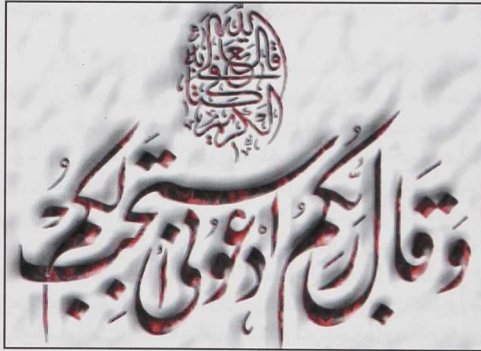 قال الله تعالى في كتابه الكريم
وَقَالَ رَبُّكُمُ ادْعُونِي أَسْتَجِبْ لَكُمْ